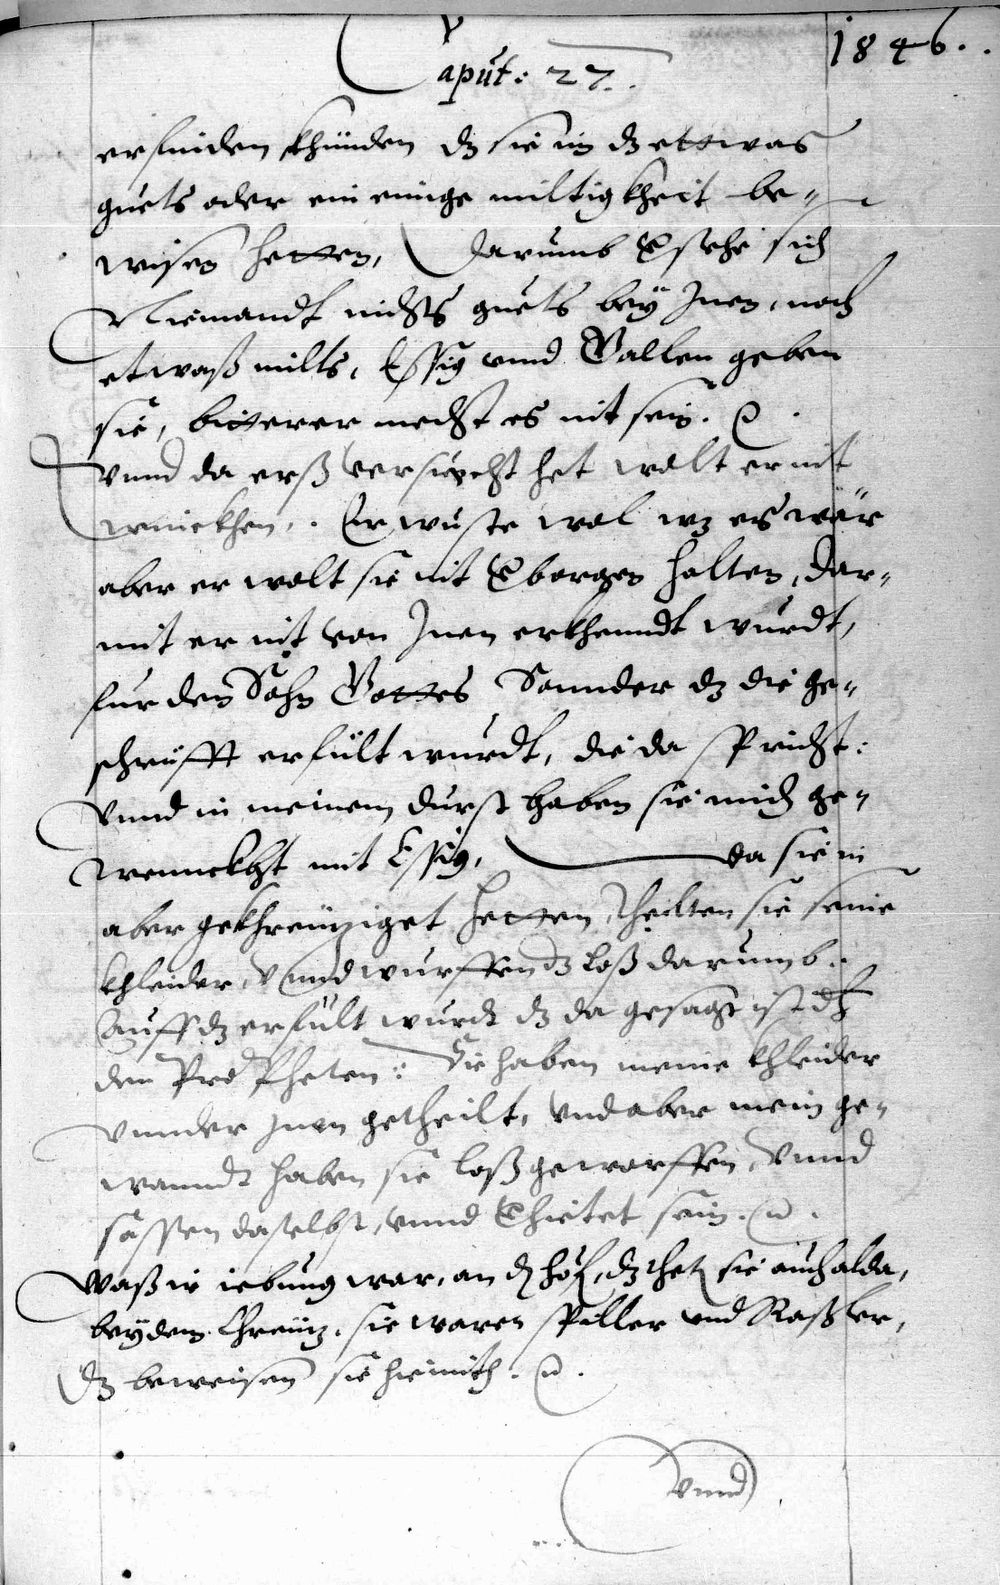 1846.
Caput: 27.
erfinden khünden dz sie im dz ettwas
guets oder ein einige miltigkheit be-
wisen hetten, Darumb versehe sich
Niemandt nichts guets bey Inen, noch
etwaß milts, Essig vnnd Gallen geben
sie, bitterer mecht es nit sein.
Vnnd da erß versuecht het wolt er nit
trinckhen. Er wuste wol wz es wär
aber er wolt sie nit verborgen halten, dar-
mit er nit von Inen erkhenndt wurdt,
fur den Sohn Gottes Sonnder dz die ge-
schrifft erfült wurdt, die da spricht:
Vnnd in meinem durst haben sie mich ge-
trennckht mit Essig, da sie in
aber gekhreuziget hetten, theilten sie seine
khleider, Vnnd wurffen dz loß darumb.
Auff dz erfült wurdt dz da gesagt ist durch
den Propheten: Sie haben meine khleider
vnnder Inen getheilt, vnd aber mein ge-
wanndt haben sie loß geworffen, Vnnd
sassen daselbst, vnnd verhietet sein.
Waß ir iebung war, an der höf, dz thet sie auch alda,
bey dem Chreuz, sie waren spiller vnd Raßler,
Dz beweisen sie hiemith.
Vnnd